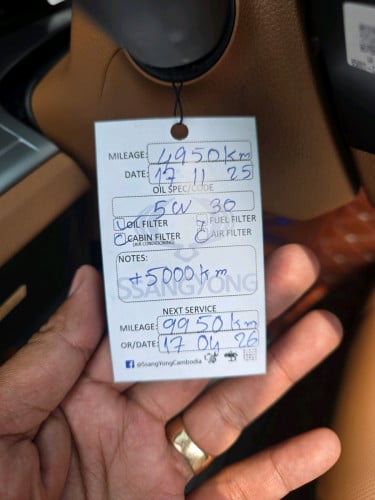 MILEAGE: 4950km
DATE: 17 11 25
OIL SPEC/CODE
5W 30
OIL FILTER FUEL FILTER
CABIN FILTER AIR FILTER
(AIR CONDITIONING)
NOTES:
+5000km
SSANGYONG
NEXT SERVICE
MILEAGE: 9950km
OR/DATE: 17 04 26
@SsangYongCambodia